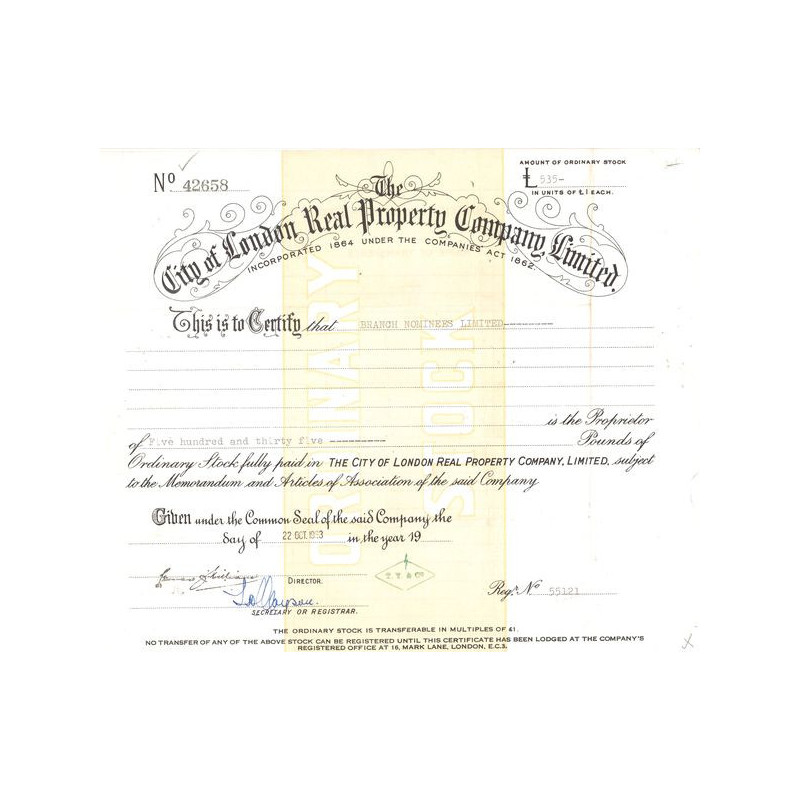 AMOUNT OF ORDINARY STOCK
Nº 42658
£ 535-
IN UNITS OF £1 EACH.
The
City of London Real Property Company, Limited.
INCORPORATED 1864 UNDER THE COMPANIES ACT 1862.
This is to Certify that BRANCH NOMINEES LIMITED
is the Proprietor
of Five hundred and thirty five Pounds of
Ordinary Stock fully paid in THE CITY OF LONDON REAL PROPERTY COMPANY, LIMITED, subject
to the Memorandum and Articles of Association of the said Company
Given under the Common Seal of the said Company the
day of 22 OCT. 1963 in the year 19
DIRECTOR.
T. T. & Co
Regd. Nº 55121
SECRETARY OR REGISTRAR.
THE ORDINARY STOCK IS TRANSFERABLE IN MULTIPLES OF £1
NO TRANSFER OF ANY OF THE ABOVE STOCK CAN BE REGISTERED UNTIL THIS CERTIFICATE HAS BEEN LODGED AT THE COMPANY'S
REGISTERED OFFICE AT 16, MARK LANE, LONDON, E.C.3.
ORDINARY
STOCK